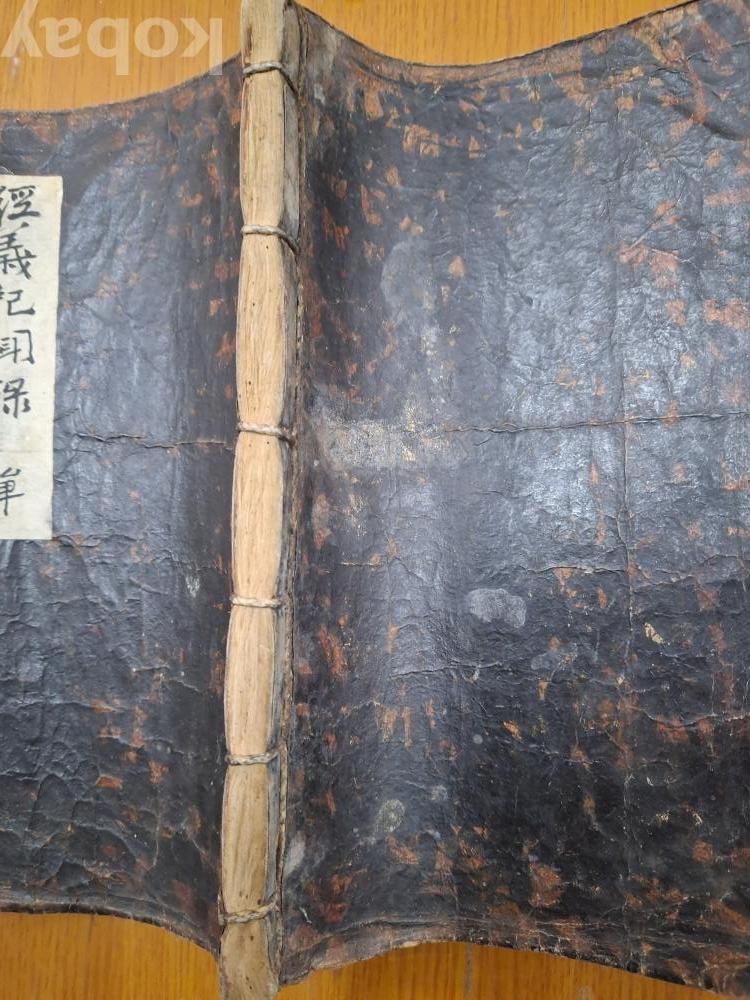 Kobay
經義記聞錄 單